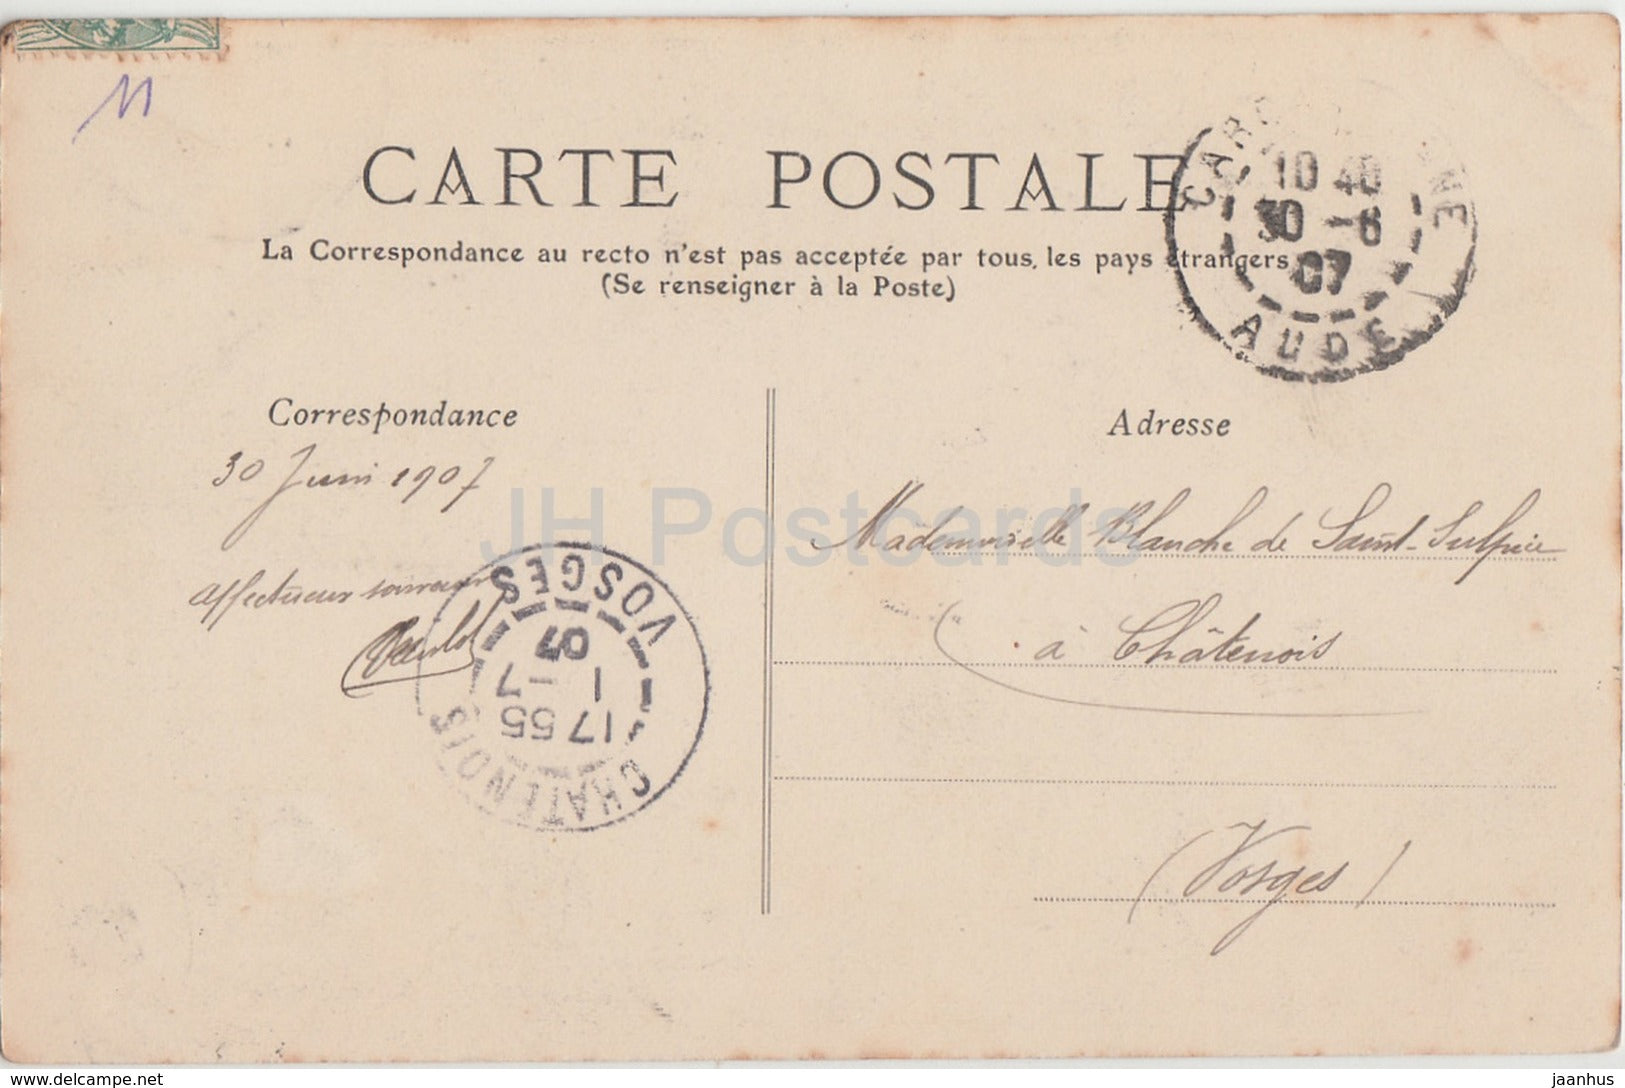 11
CARTE POSTALE
La Correspondance au recto n'est pas acceptée par tous, les pays étrangers
(Se renseigner à la Poste)
10 40
30 -6
07
AUDE
Correspondance
Adresse
30 Juin 1907
affectueux souvenir
Mademoiselle Blanche de Saint-Sulpice
à Châtenois
(Vosges)
VOSGES
07
1 -7
17 55
CHATENOIS
JH Postcards
www.delcampe.net
jaanhus